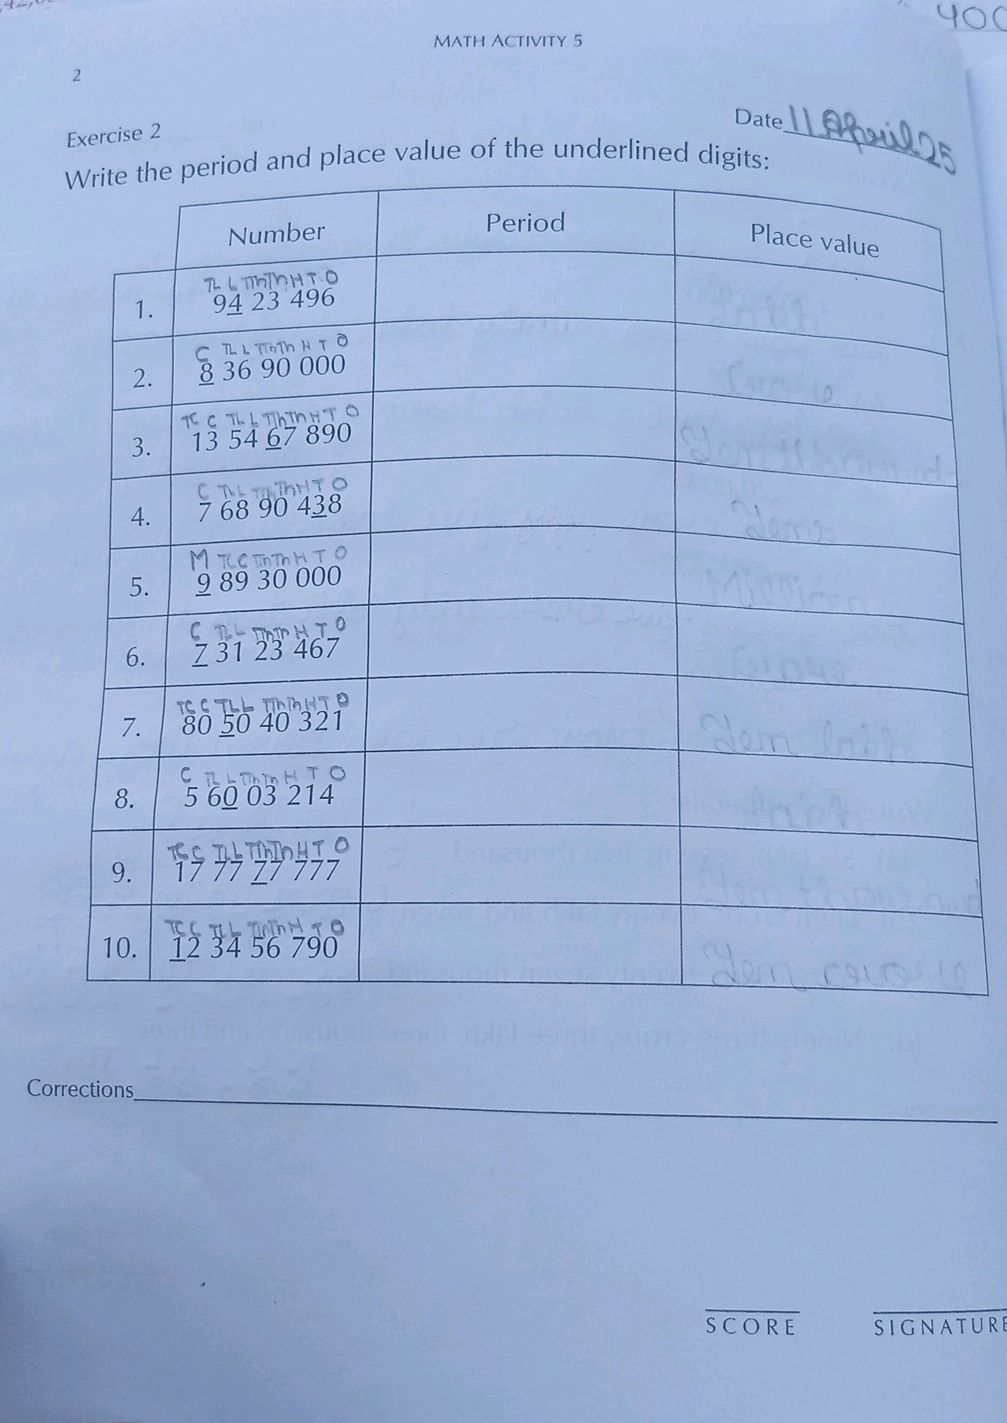 400
MATH ACTIVITY 5
2
Exercise 2
Date 11 April 25
Write the period and place value of the underlined digits:
Number Period Place value
TL L TTh Th H T O
1. 94 23 496
C TL L TTh Th H T O
2. 8 36 90 000
TC C TL L TTh Th H T O
3. 13 54 67 890
C TL L TTh Th H T O
4. 7 68 90 438
M TC C TTh Th H T O
5. 9 89 30 000
C TL L TTh Th H T O
6. 7 31 23 467
TC C TL L TTh Th H T O
7. 80 50 40 321
C TL L TTh Th H T O
8. 5 60 03 214
TC C TL L TTh Th H T O
9. 17 77 77 777
TC C TL L TTh Th H T O
10. 12 34 56 790
Corrections
SCORE SIGNATURE